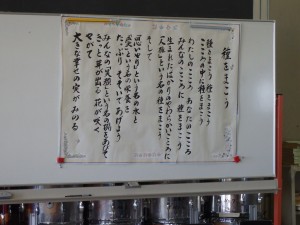 種をまこう
種をまこう 種をまこう
こころの中に種をまこう
わたしのこころ あなたのこころ
みんなのこころに 種をまこう
生まれたばかりのやわらかいこころに
「人権」という名の種をまこう
そして
「思いやり」という名の水と
「愛」という名の
たっぷり そそいであげよう
みんなの「笑顔」という名の陽をあびて
きっと芽が出る 花が咲く
やがて
大きな幸せの実がみのる